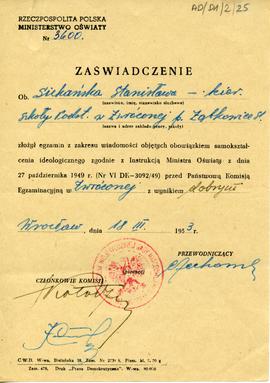 AD/DA1/2/25
RZECZPOSPOLITA POLSKA
MINISTERSTWO OŚWIATY
Nr 3600.
ZAŚWIADCZENIE
Ob. Siekańska Stanisława – kier.
(nazwisko, imię, stanowisko służbowe)
szkoły podst. w Zwróconej p. Ząbkowice Śl.
(nazwa i adres zakładu pracy, szkoły)
złożył egzamin z zakresu wiadomości objętych obowiązkiem samokształ-
cenia ideologicznego zgodnie z Instrukcją Ministra Oświaty z dnia
27 października 1949 r. (Nr VI DF-3092/49) przed Państwową Komisją
Egzaminacyjną w Zwróconej z wynikiem dobrym
Wrocław, dnia 18 III. 1953 r.
PRZEWODNICZĄCY
CZŁONKOWIE KOMISJI